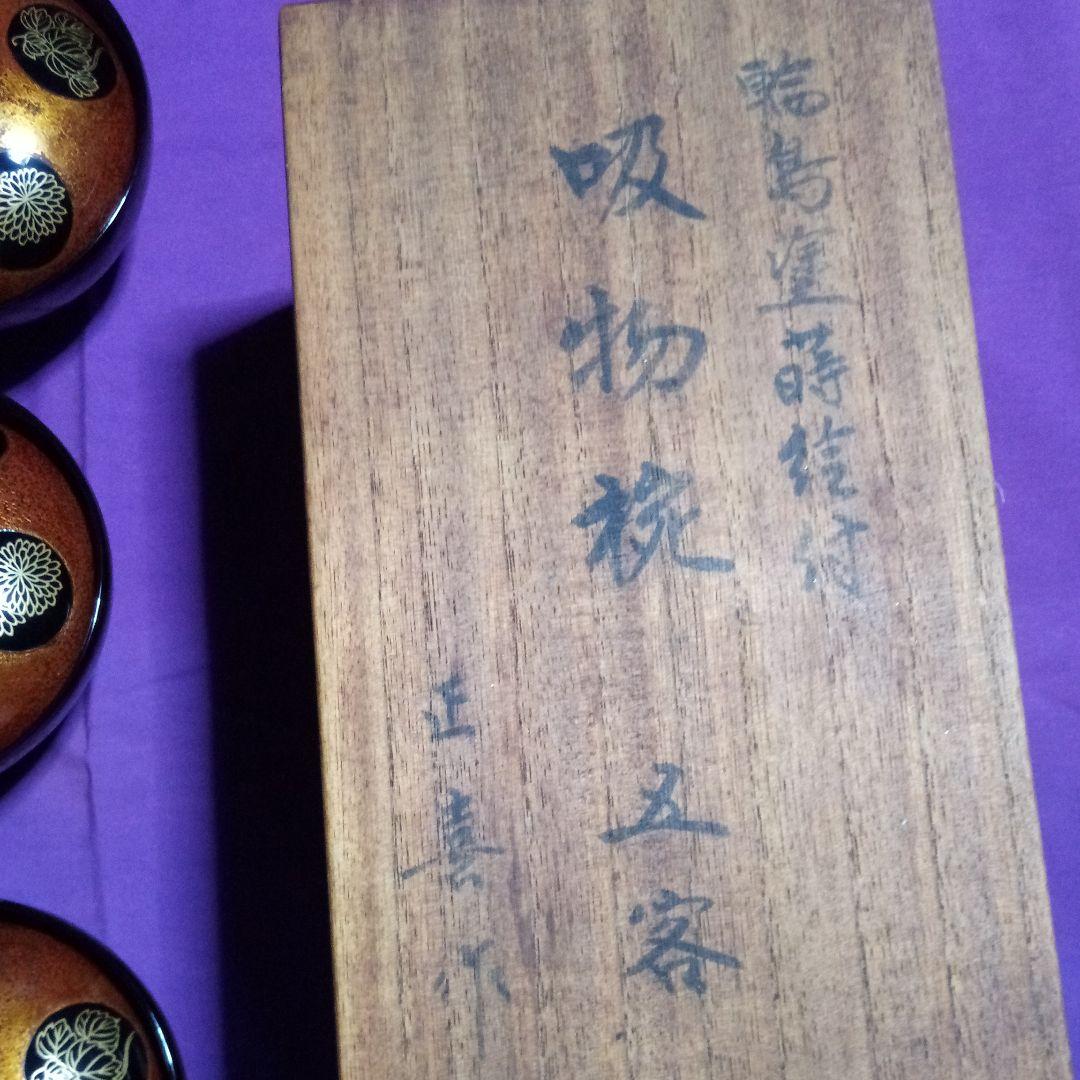 輪島塗蒔絵付
吸物椀 五客
正喜作